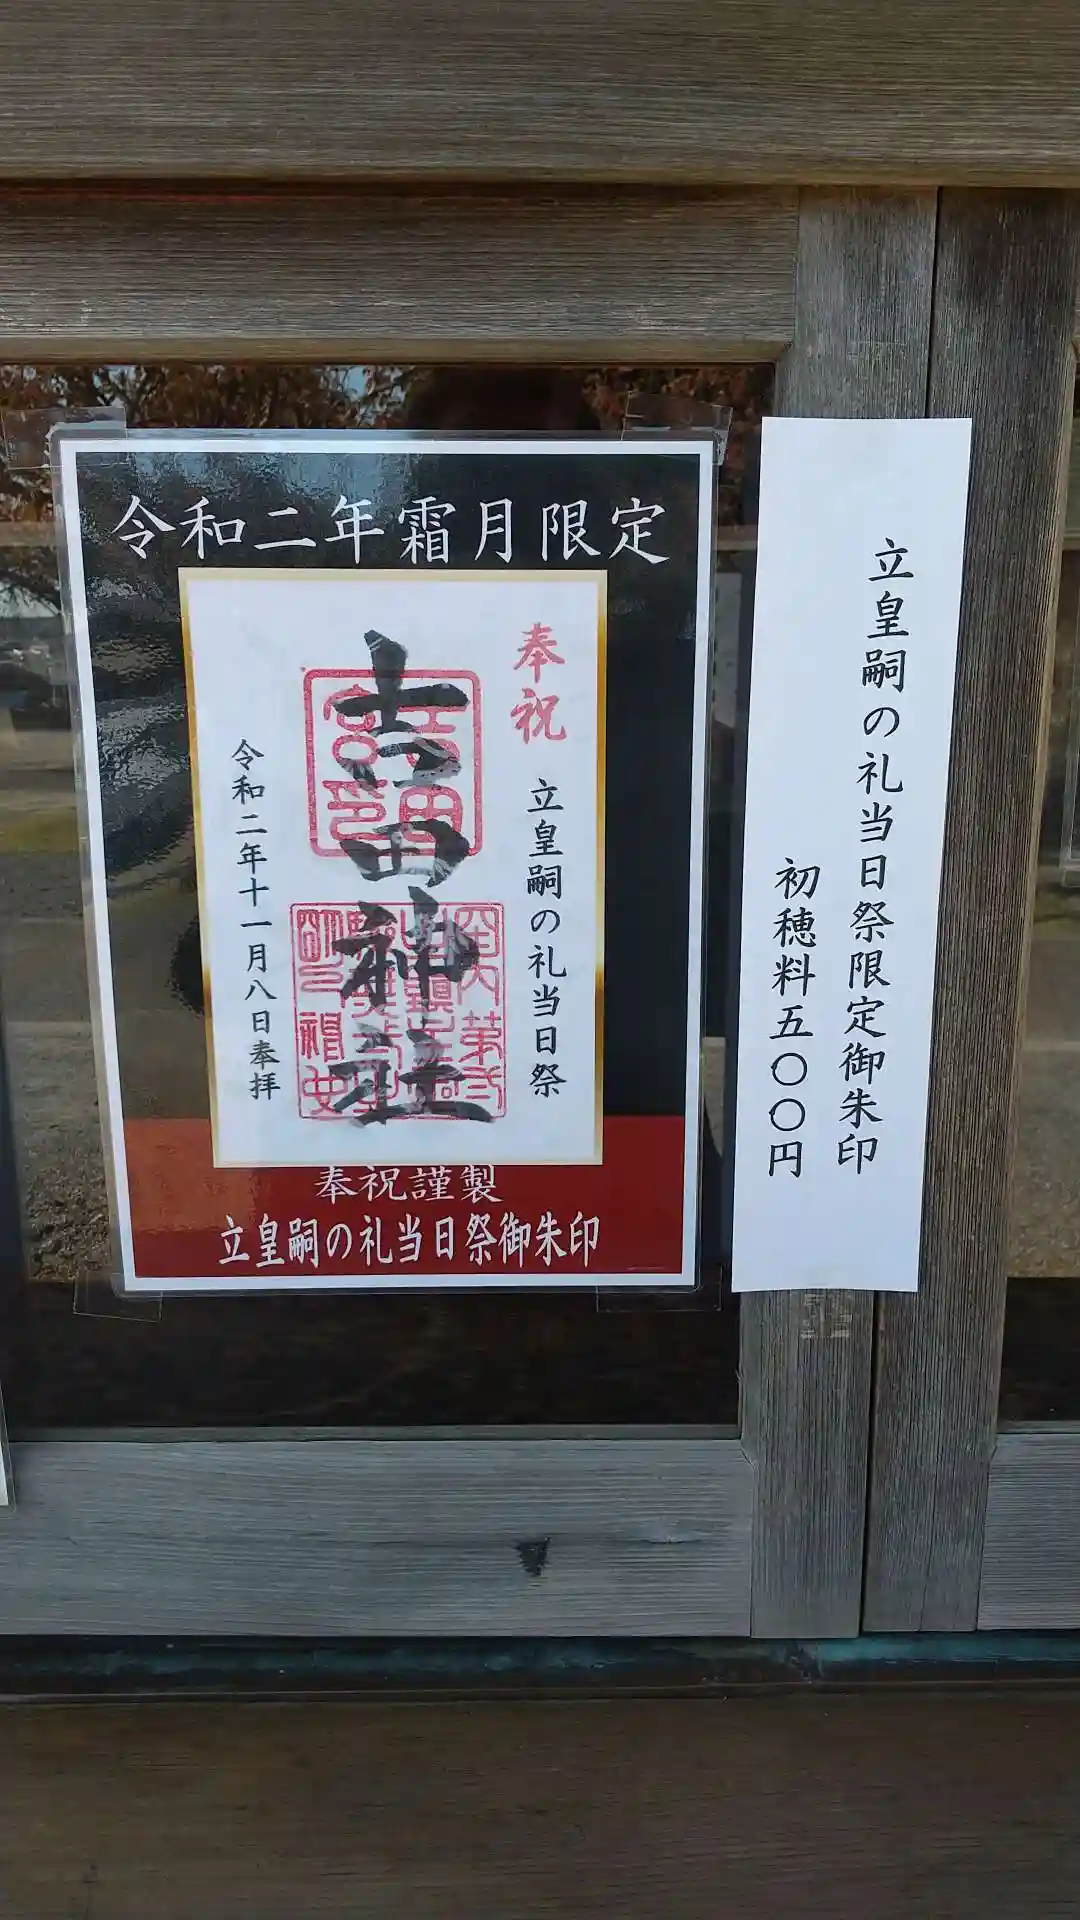 令和二年霜月限定
奉祝
立皇嗣の礼当日祭
吉田神社
令和二年十一月八日奉拝
奉祝謹製
立皇嗣の礼当日祭御朱印
立皇嗣の礼当日祭限定御朱印
初穂料五〇〇円